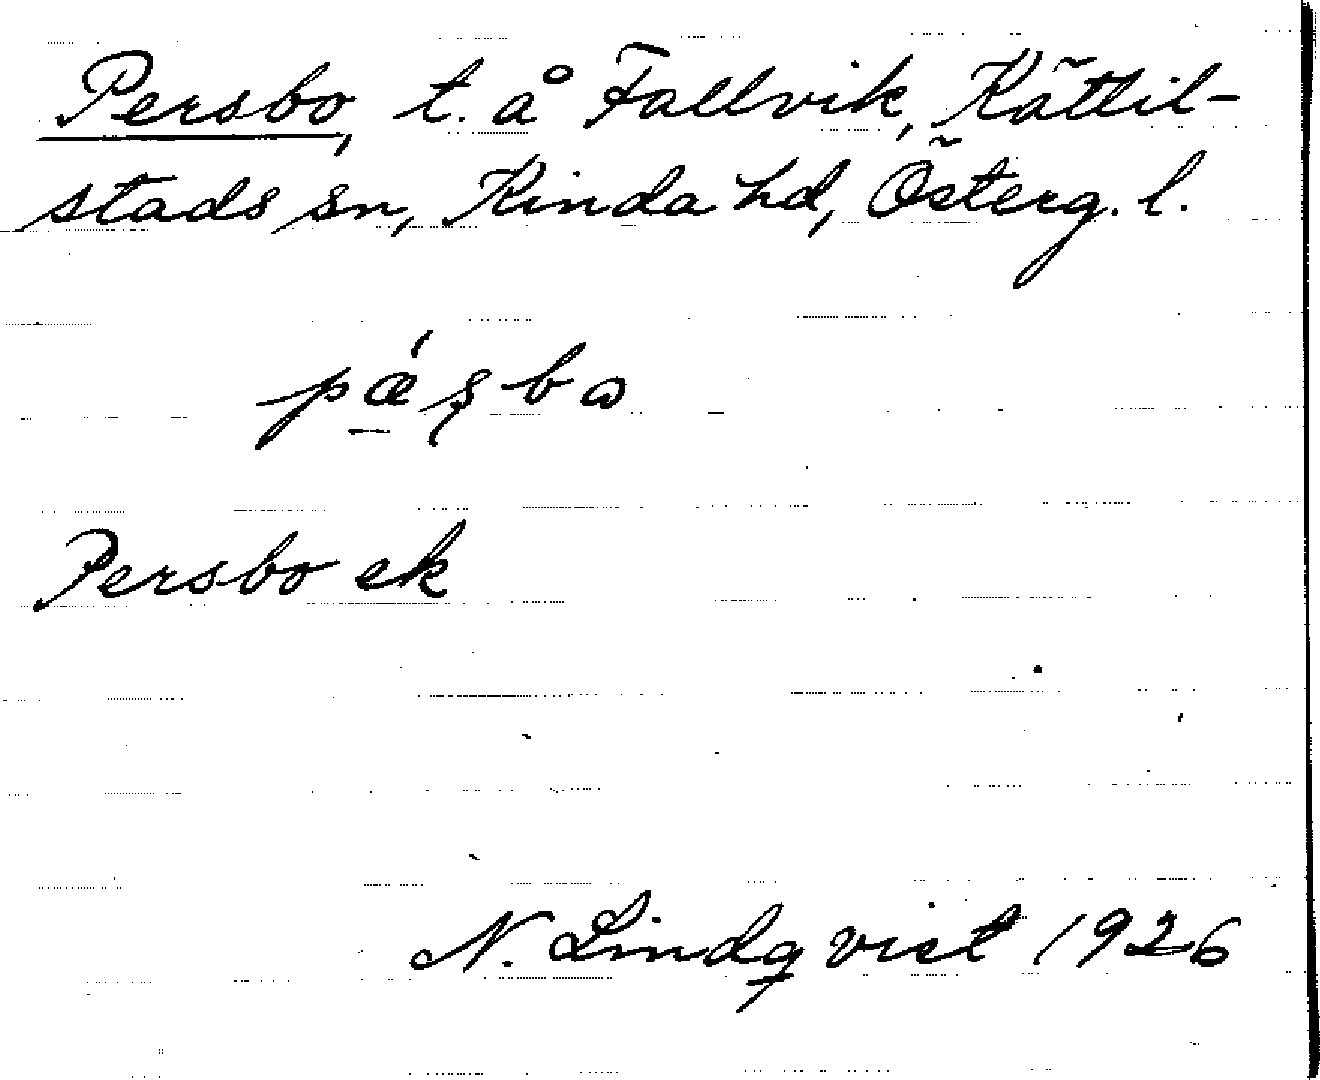 Persbo, t. å Fallvik, Kättil-
stads sn, Kinda hd, Österg. l.
pǽ̠ʂbω
Persbo ek
N. Lindqvist 1926